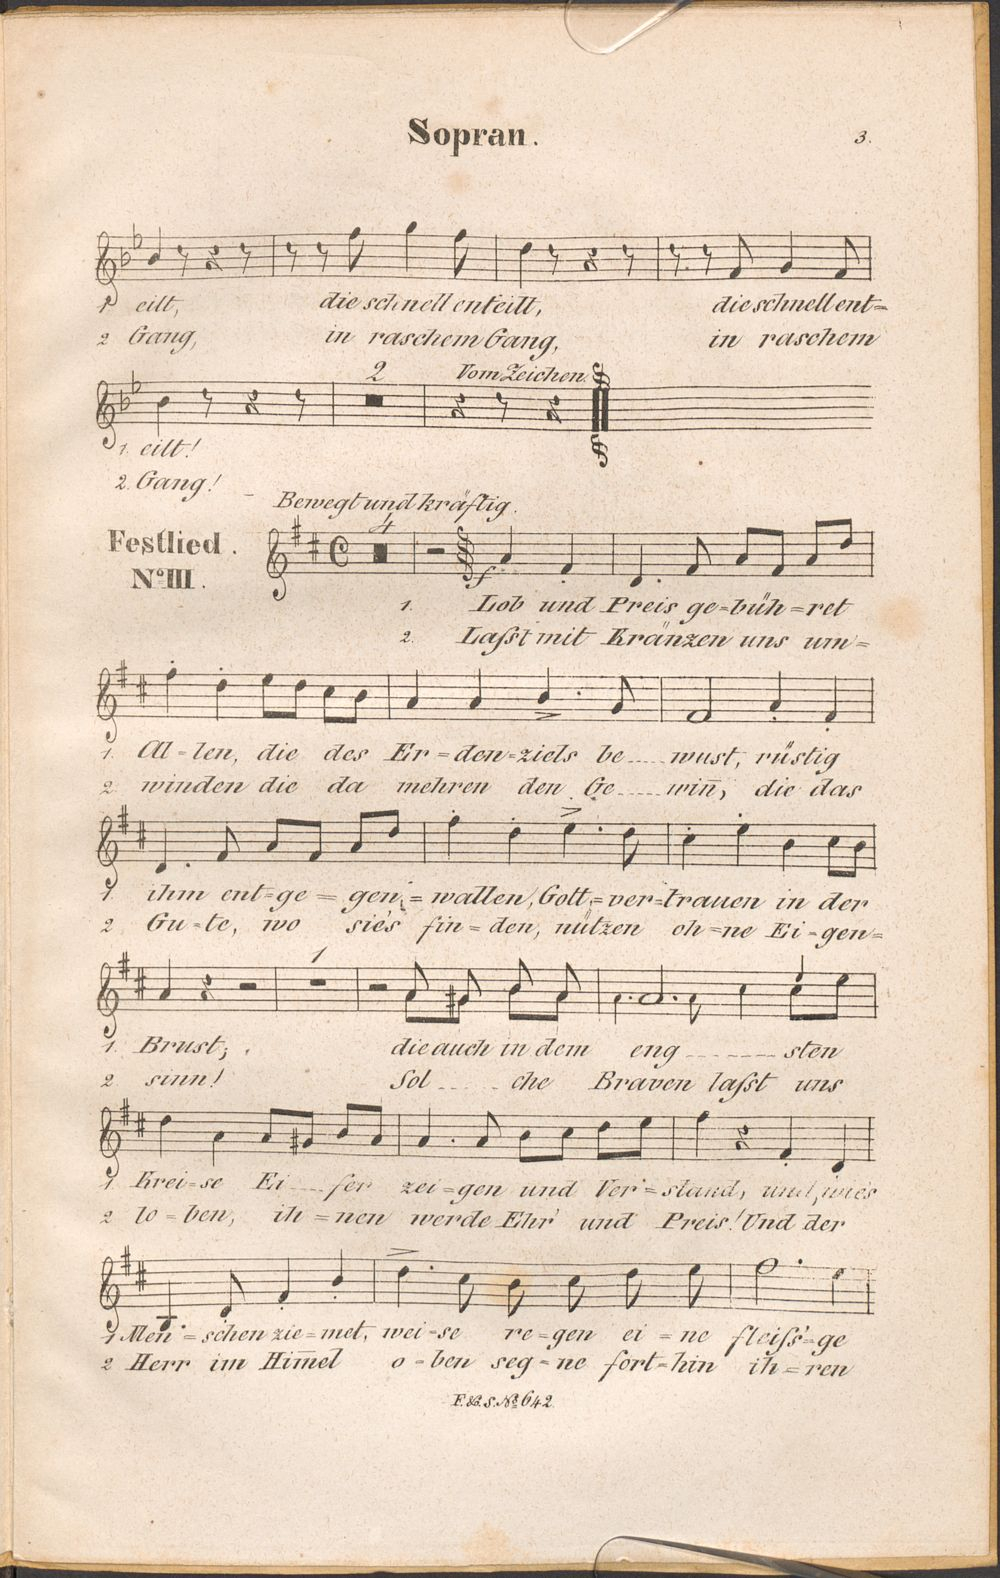 Sopran.
3.
1 eilt, die schnell enteilt, die schnell ent=
2 Gang, in raschem Gang, in raschem
2 Vom Zeichen.
1. eilt!
2. Gang!
Bewegt und kräftig.
Festlied.
No. III.
4
f
1. Lob und Preis ge=büh=ret
2. Laſst mit Kränzen uns um=
1. Al=len, die des Er=den=ziels be.....wust, rüstig
2. winden die da mehren den Ge.....win̄; die das
1. ihm ent=ge=gen=wallen, Gott=ver=trauen in der
2 Gu=te, wo sie's fin=den, nützen oh=ne Ei=gen=
1
1. Brust; die auch in dem eng........sten
2 sinn! Sol.....che Braven laſst uns
1. Krei=se Ei....fer zei=gen und Ver=stand, und, wie's
2 lo=ben, ih=nen werde Ehr' und Preis! Und der
1 Men=schen zie=met, wei=se re=gen ei=ne fleiſs'=ge
2 Herr im Him̄el o=ben seg=ne fort=hin ih=ren
F. & B. S. No. 642.